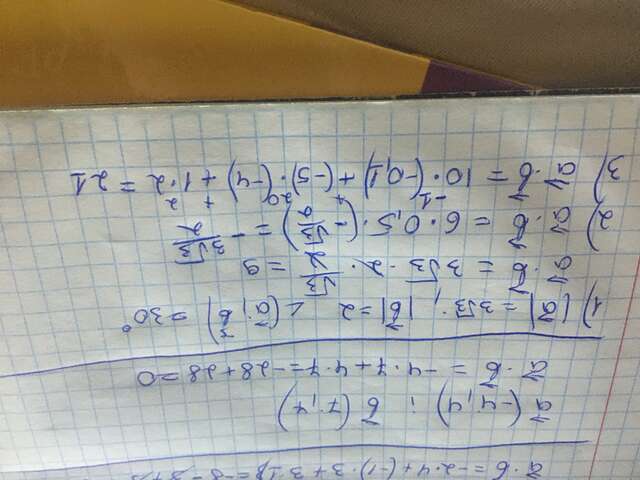 a⃗·b⃗ = -2·4+(-1)·3+3·18=-8-3+5
a⃗ (-4,4) ; b⃗ (7,7)
a⃗·b⃗ = -4·7+4·7=-28+28=0
1) |a⃗|=3√3; |b⃗|=2 ∠(a⃗;b⃗)=30°
a⃗·b⃗ = 3√3·2·√3/2 = 9
2) a⃗·b⃗ = 6·0,5·(-√3/2) = -3√3/2
3) a⃗·b⃗ = 10·(-0,1)+(-5)·(-4)+1·2 = 21
-1 + 20 + 2